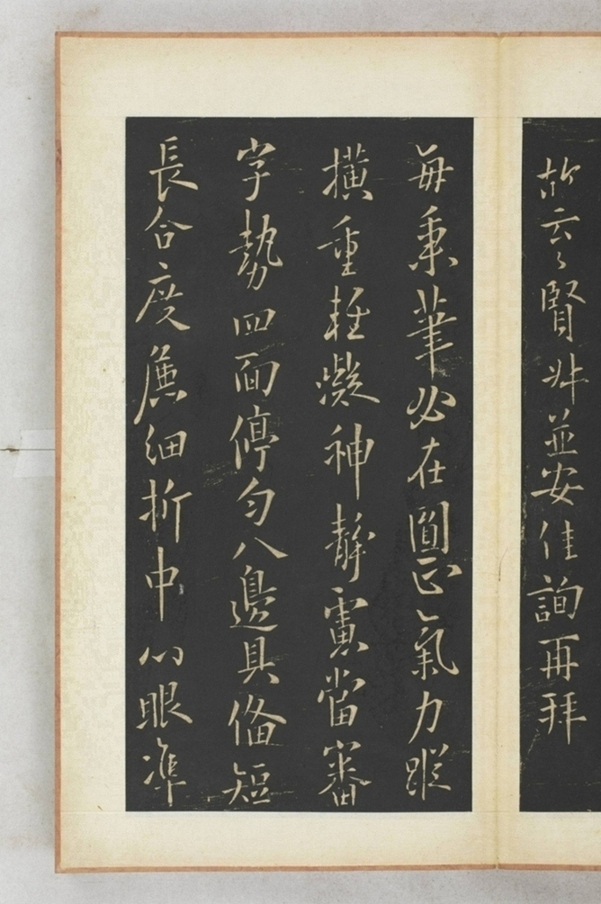 故云〻賢妳並安佳詢再拜
每秉筆必在圓正氣力蹤
橫重輕凝神靜慮當審
字勢四面停勻八邊具俻短
長合度麁細折中心眼準